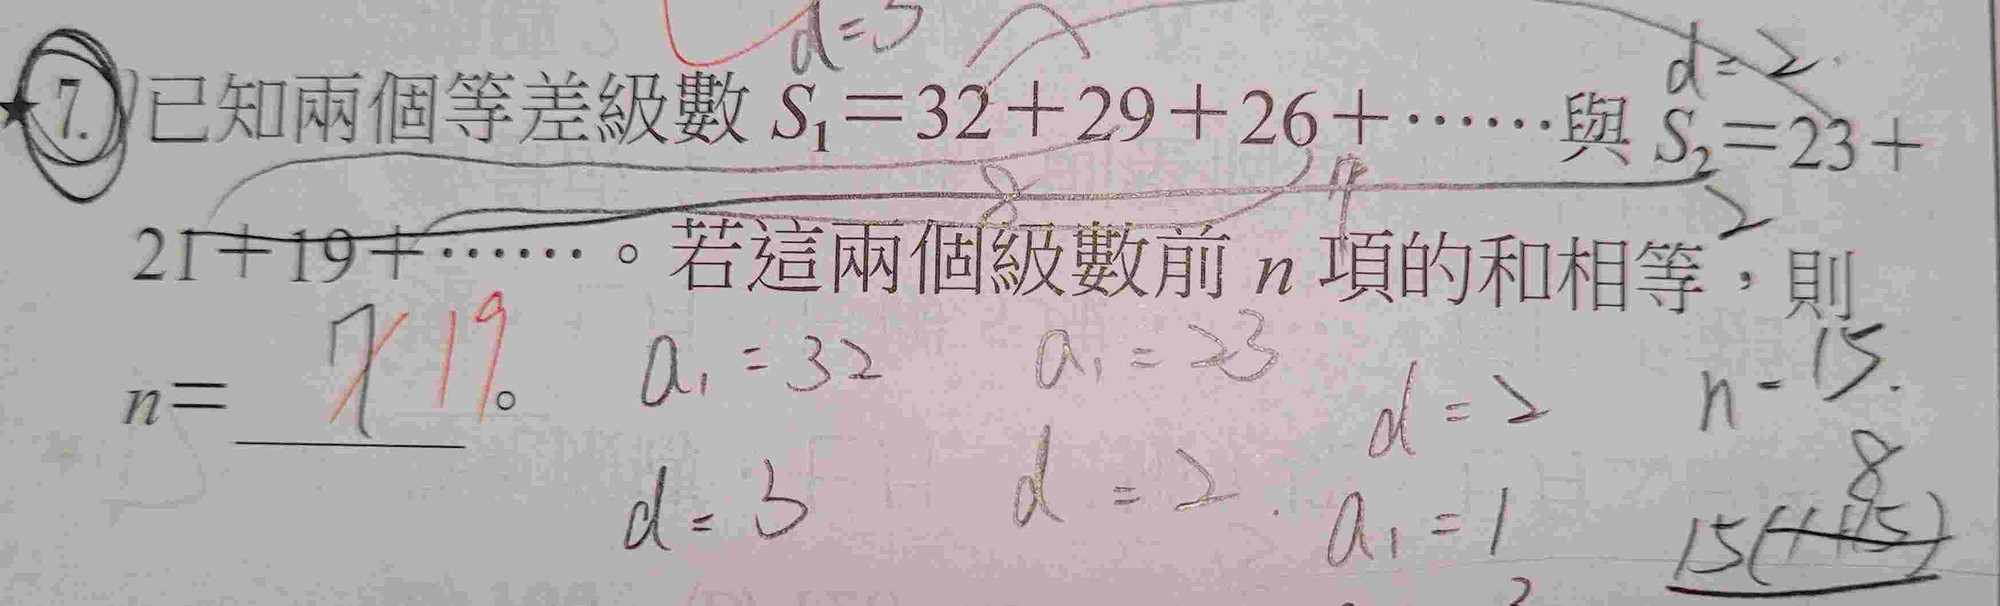 d=3
d=2
7. 已知兩個等差級數 S₁=32+29+26+……與 S₂=23+
8
2
21+19+……。若這兩個級數前 n 項的和相等，則
n= 7 19。
a₁=32 a₁=23 d=2 n=15.
d=3 d=2 a₁=1 8
15(1+15)
2